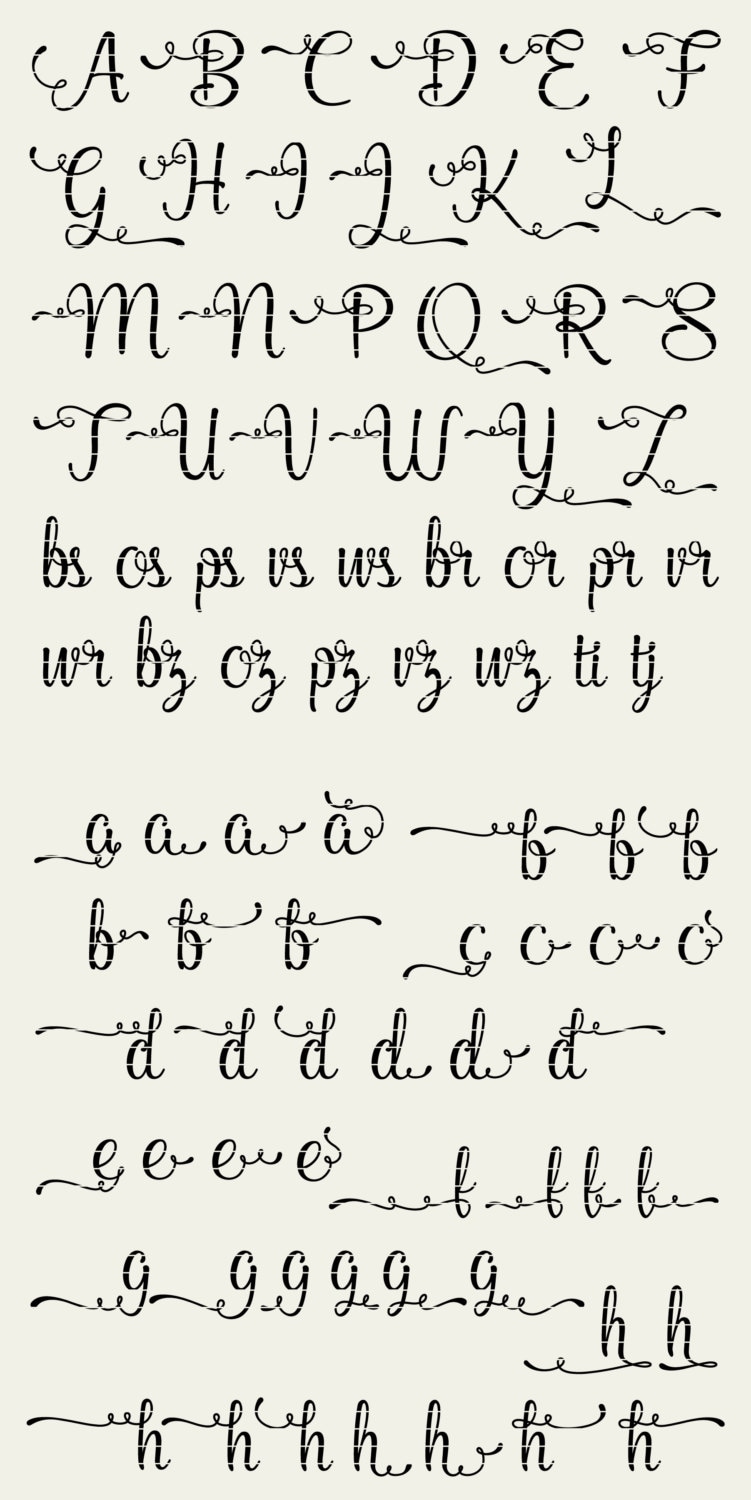 A B C D E F
G H I J K L
M N P Q R S
T U V W Y Z
bs os ps vs ws br or pr vr
wr bz oz pz vz wz ti tj
a a a a b b b
b b b c c c c
d d d d d d
e e e e f f f f
g g g g g g h h
h h h h h h h